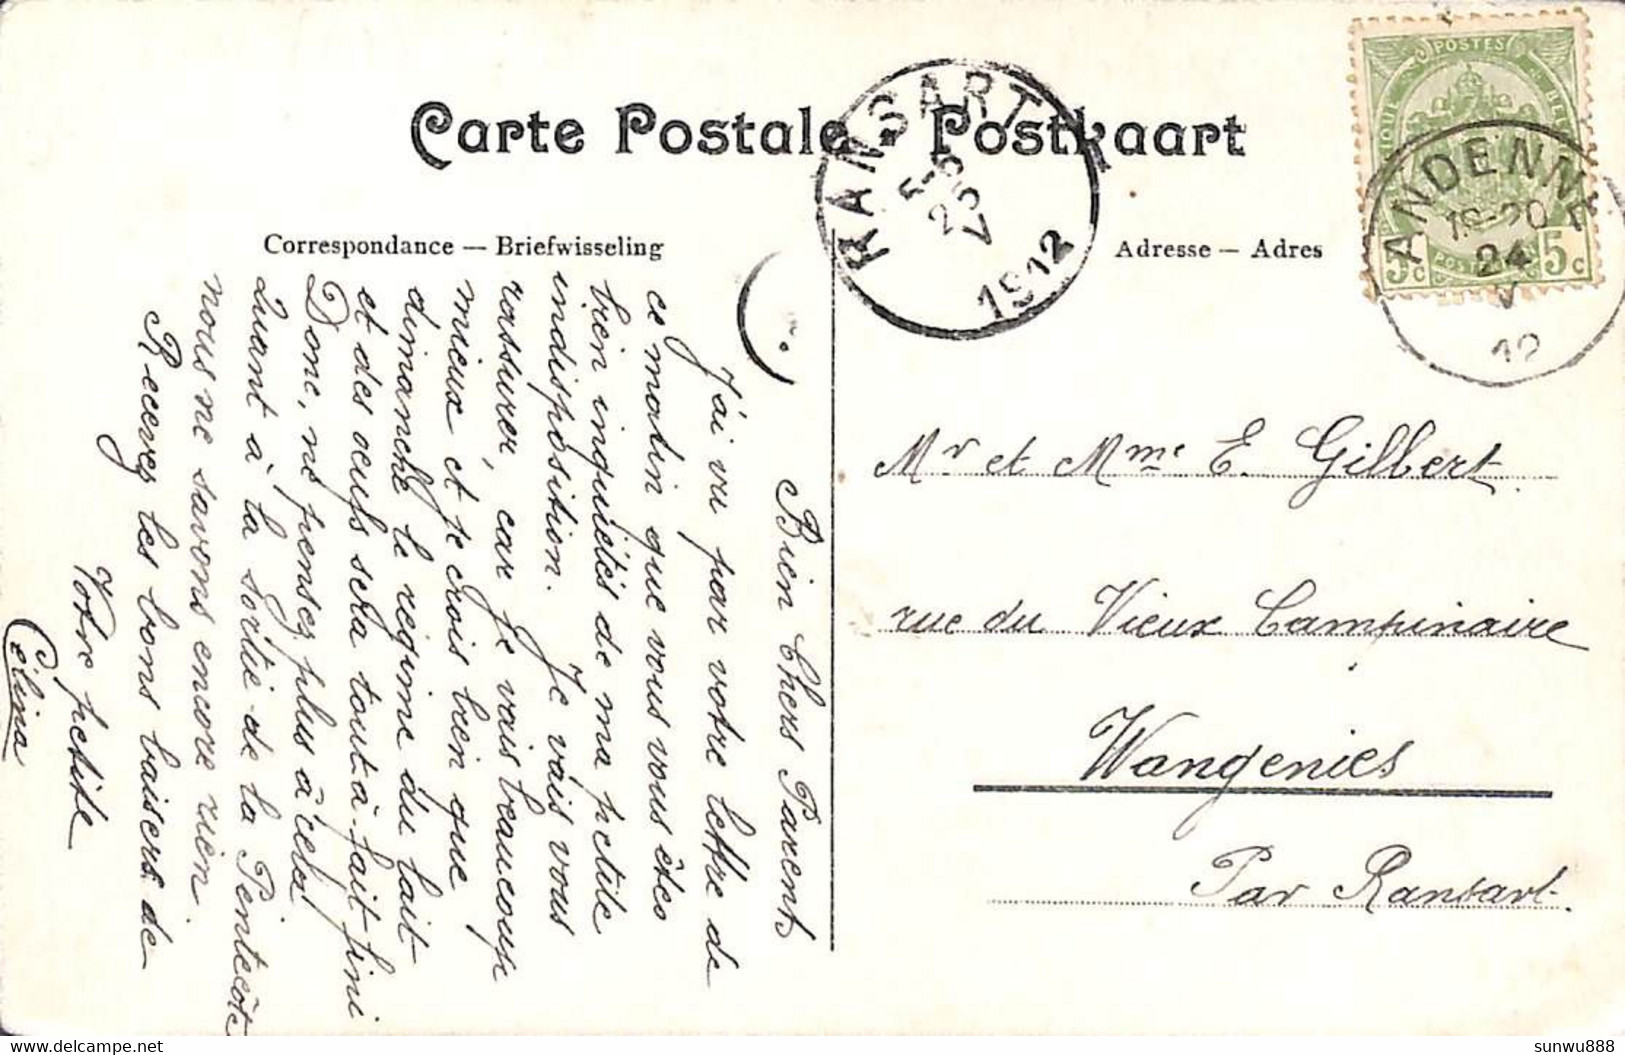 Carte Postale • Postkaart
Correspondance — Briefwisseling
Adresse — Adres
POSTES
BELG
5c
5c
POST
ANDENNE
18-20
24
V
12
RANSART
5-6
25
V
1912
Bien Chers Parents
J'ai vu par votre lettre de
ce matin que vous vous êtes
bien inquiétés de ma petite
indisposition. Je vais vous
rassurer, car je vais beaucoup
mieux et je crois bien que
dimanche le régime du lait
et des oeufs sera tout à fait fini
Donc, ne pensez plus à cela
Quant à la sortie de la Pentecôte
nous ne savons encore rien.
Recevez les bons baisers de
Votre petite
Célina
Mr et Mme E. Gilbert
rue du Vieux Campinaire
Wangenies
Par Ransart.
www.delcampe.net
sunwu888